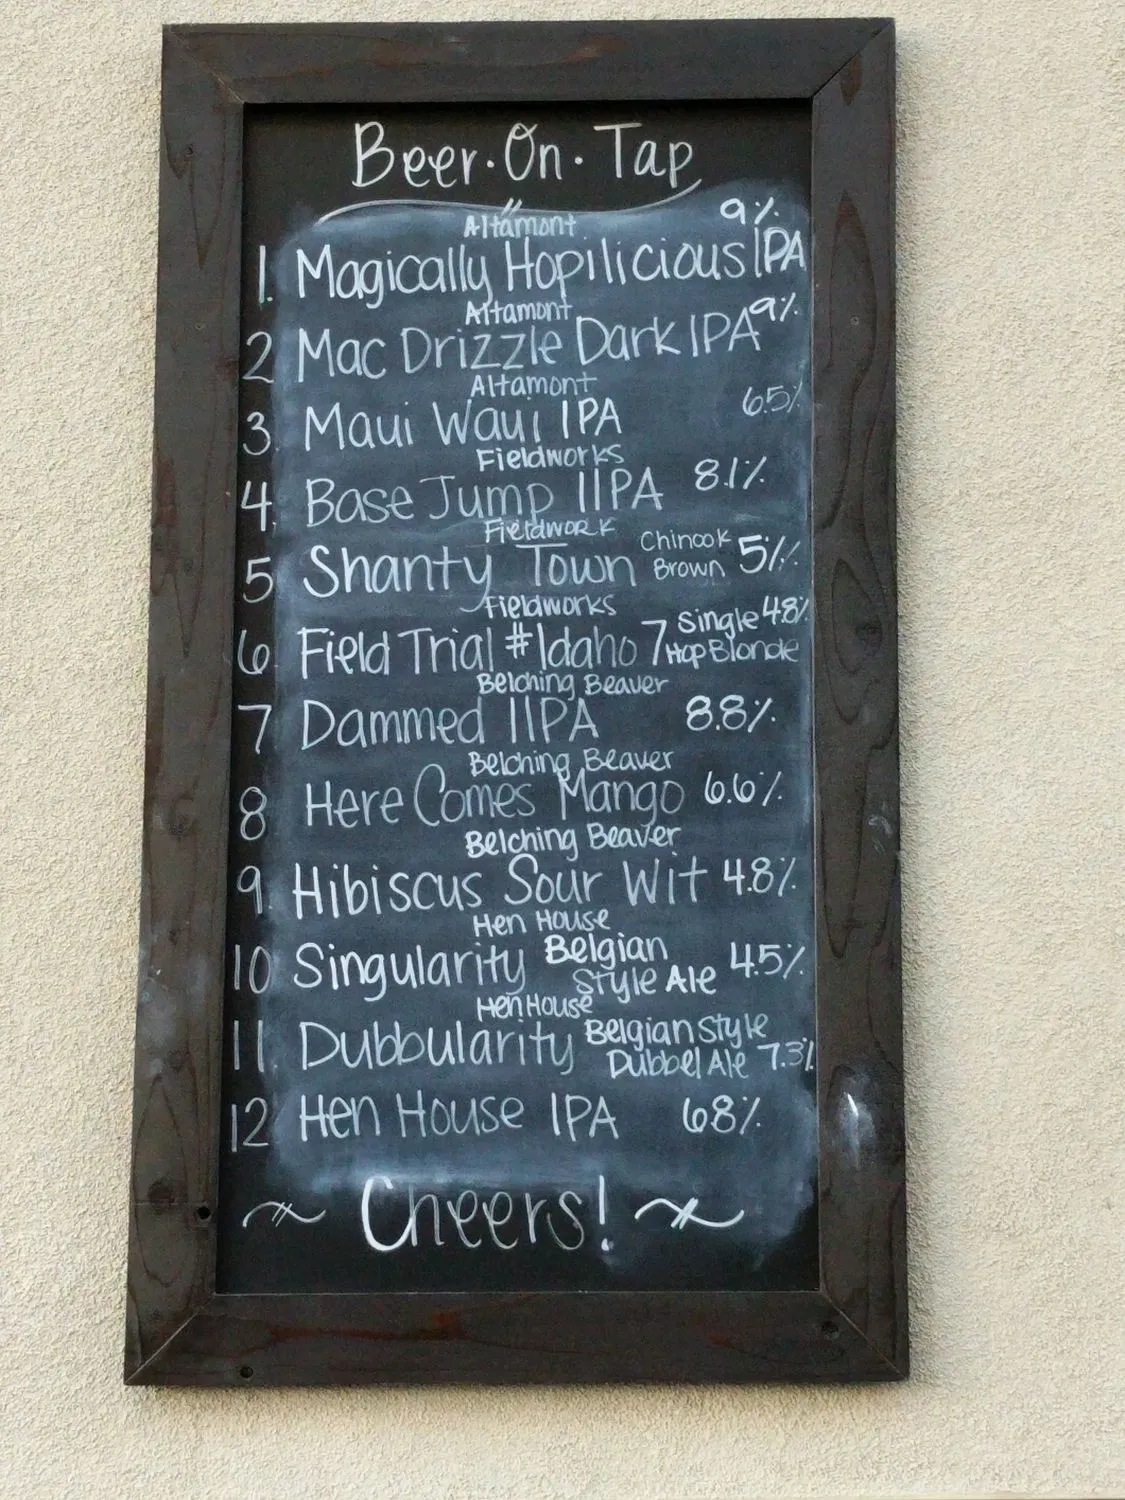 Beer·On·Tap
Altamont 9%
1. Magically Hopilicious IPA
Altamont 9%
2 Mac Drizzle Dark IPA
Altamont
3. Maui Waui IPA 6.5%
Fieldworks
4. Base Jump IIPA 8.1%
Fieldwork
5 Shanty Town Chinook Brown 5%
Fieldworks
6 Field Trial #Idaho 7 Single Hop Blonde 4.8%
Belching Beaver
7 Dammed IIPA 8.8%
Belching Beaver
8 Here Comes Mango 6.6%
Belching Beaver
9. Hibiscus Sour Wit 4.8%
Hen House
10 Singularity Belgian Style Ale 4.5%
Hen House
11 Dubbularity Belgian Style Dubbel Ale 7.3%
12 Hen House IPA 6.8%
Cheers!